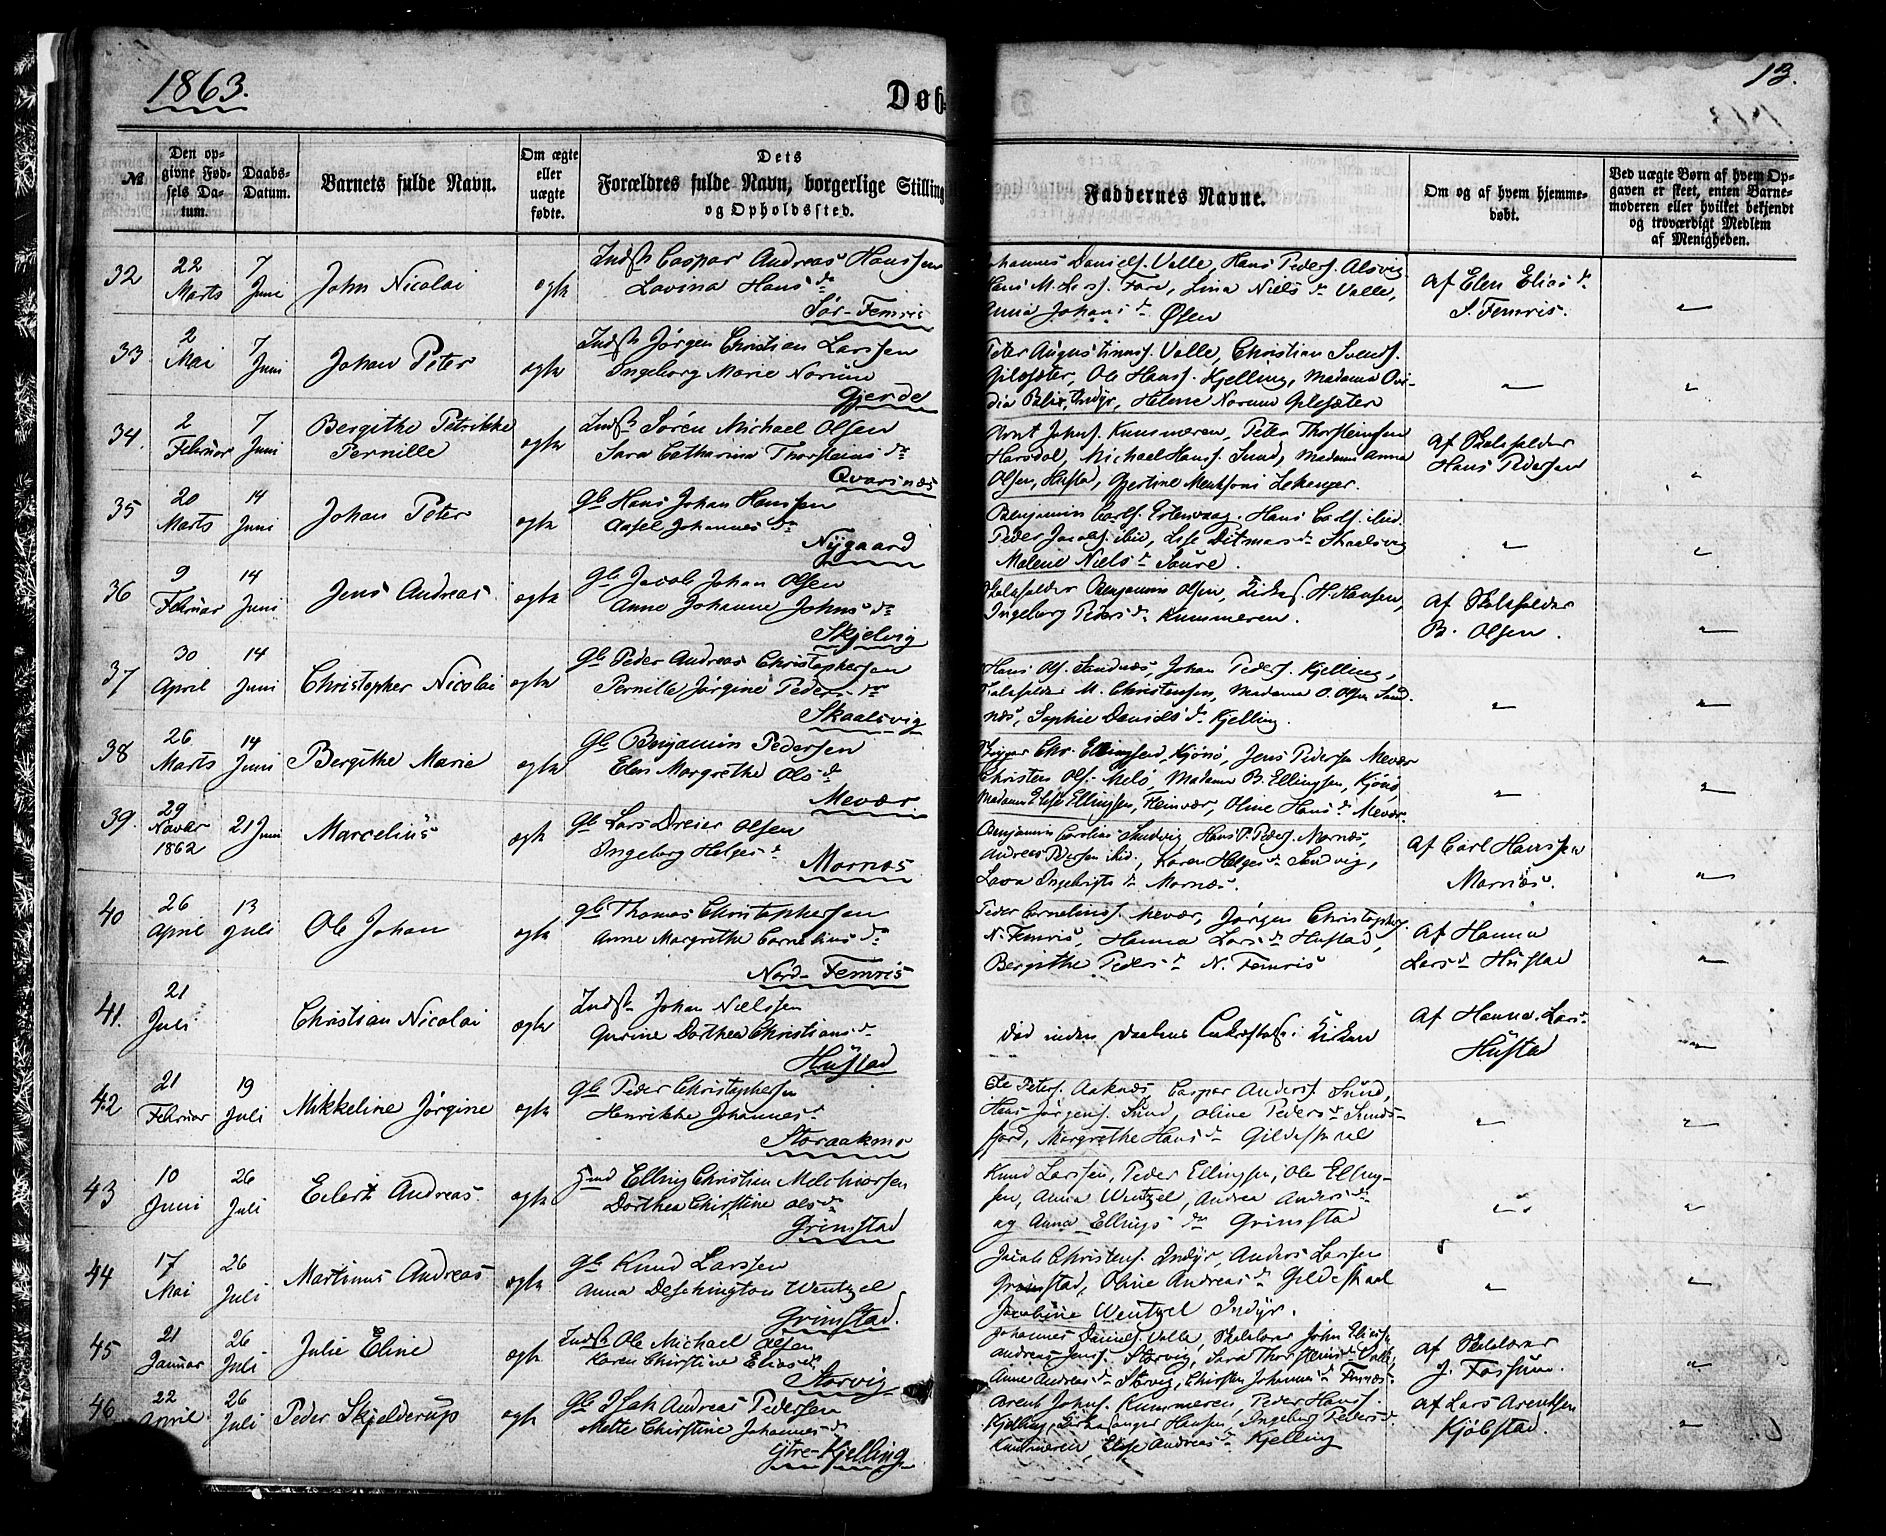 1863.
13.
Døb
№
Den opgivne Fødsels Datum.
Daabs-Datum.
Barnets fulde Navn.
Om ægte eller uægte fødte.
Dets Forældres fulde Navn, borgerlige Stilling og Opholdssted.
Faddernes Navne.
Om og af hvem hjemmedøbt.
Ved uægte Børn af hvem Opgaven er skeet, enten Barnemoderen eller hvilket bekjendt og troværdigt Medlem af Menigheden.
32 22 Marts 7 Juni John Nicolai ægte
Indst Caspar Andreas Hanssen
Lovina Hans dr
Sør-Femris
Johannes Daniels. Valle, Hans Peders. Alsvig
Hans M. Lars. Fore, Lina Niels dr Valle,
Anna Johans dr Øsen
Af Elen Elias dr
S. Femris.
33 2 Mai 7 Juni Johan Peter ægte
Indst Jørgen Christian Larssen
Ingeborg Marie Norum
Gjerde
Peter Augustinus. Valle, Christian Svends.
Gilesæter, Ole Hans. Kjelling, Madame
Blix, Indyr, Helene Norum Gilesæter
34. 2 Februar 7 Juni Bergithe Petrikke
Pernille ægte
Indst Søren Michael Olsen
Sara Catharina Thorsteins dr
Qvarsnæs
Arnt Johns. Kunmæren, Peter Thorsteinsen
Harsdal, Michael Hans. Sund, Madame Anna
Olsen, Hustad, Gjertine
Af Skoleholder
Hans Pedersen
35 20 Marts 14 Juni Johan Peter ægte
Gb Hans Johan Hanssen
Axsel Johannes dr
Nygaard
Benjamin Carls. Ertenvaag. Hans Carls. ibid.
Peder Jacobs. ibid, Lise Ditmars dr Skaalsvig
Malene Niels dr Saure.
36 9 Februar 14 Juni Jens Andreas ægte
Gb Jacob Johan Olsen
Anne Johanne Johns dr
Skjelvig
Skoleholder Benjamin Olsen, Kirkes. H. Hansen,
Ingeborg Peders dr Kunmæren.
Af Skoleholder
B. Olsen.
37 30 April 14 Juni Christopher Nicolai ægte
Gb Peder Andreas Christophersen
Pernille Jørgine Peders dr
Skaalsvig
Hans Ols. Sandnæs, Johan Peders. Kjelling,
Skoleholder M. Christensen, Madame O. Olsen Sandnæs,
Sophie Daniels dr Kjelling.
38 26 Marts 14 Juni Bergithe Marie ægte
Gb Benjamin Pedersen
Elen Margrethe Ols dr
Mevær
Chr. Ellingsen, Kjønø, Jens Pedersen Mevær
Christen Ols. Melø, Madame B. Ellingsen, Kjønø,
Madame Else Ellingsen, Fleinvær, Oline Hans dr Mevær.
39. 29 Novbr 1862 21 Juni Marcelius ægte
Gb Lars Dreier Olsen
Ingeborg Helges dr
Mornæs
Benjamin Cornelius. Sandvig, Hans P. Peders. Mornæs,
Andreas Pedersen ibid., Karen Helges dr Sandvig,
Lava Ingebrigts dr Mornæs.
Af Carl Hanssen
Mornæs.
40 26 April 13 Juli Ole Johan ægte
Gb Thomas Christophersen
Anne Margrethe Cornelius dr
Nord-Femris
Peder Cornelius. Mevær, Jørgen Christophers.
N. Femris, Hanna Lars dr Hustad,
Bergithe Peders dr N. Femris
Af Hanna
Lars dr Hustad
41. 21 Juli Christian Nicolai ægte
Indst Johan Nielssen
Gurine Dorthea Christians dr
Hustad
Død inden Daabens i Kirken
Af Hanna Lars dr
Hustad
42 21 Februar 19 Juli Mikkeline Jørgine ægte
Gb Peder Christophersen
Henrikke Johannes dr
Storaakmo
Ole Peters. Aaknæs, Caspar Anders. Sund,
Hans Jørgens. Sund, Oline Peders dr Sundsfjord,
Margrethe Hans dr Gildeskaal
43 10 Juni 26 Juli Eilert Andreas. ægte
Elling Christian Melchiorsen
Dorthea Christine Ols dr
Grimstad
Knud Larssen, Peder Ellingsen, Ole Ellingsen,
Anna Wentzel, Andrea Anders dr
og Anna Ellings dr Grimstad
44 17 Mai 26 Juli Martinus Andreas ægte
Gb Knud Larssen
Anna Deschington Wentzel
Grimstad.
Jacob Christens. Indyr, Anders Larssen
Grimstad, Oline Andreas dr Gildeskaal
Jacobine Wentzel Indyr.
45 21 Januar 26 Juli Julie Eline ægte
Indst Ole Michael Olsen
Karen Christine Elias dr
Storvig
Johannes Daniels. Valle, Skolelærer John Eliass.
Andreas Jens. Storvig, Sara Thorsteins dr Valle,
Anne Andreas dr Storvig, Christen Johannes dr Femris.
Af Skolelærer
J. Fossum.
46 22 April 26 Juli Peder Skjelderup ægte
Gb Isak Andreas Pedersen
Mette Christine Johannes dr
Ytre-Kjelling
Arent Johns. Kunmæren, Peder Hans.
Kjelling, Kirkesanger Hansen, Ingeborg Peders dr
Kunmæren, Else Andreas dr Kjelling
Af Lars Arentsen
Kjøbstad.